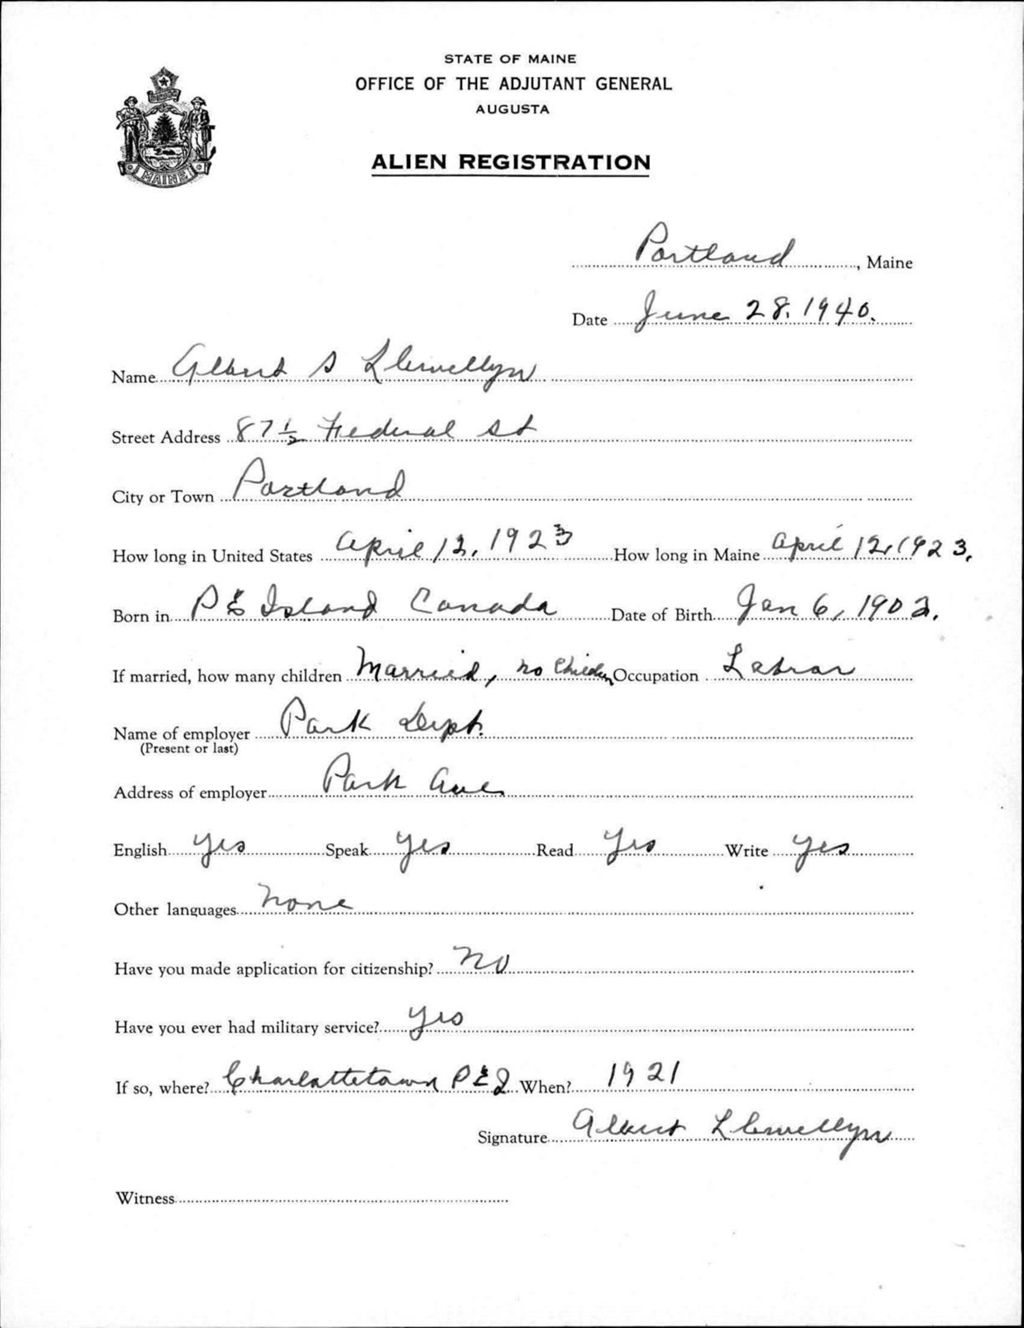 STATE OF MAINE
OFFICE OF THE ADJUTANT GENERAL
AUGUSTA
MAINE
ALIEN REGISTRATION
Portland, Maine
Date June 28, 1940.
Name Albert S Llewellyn
Street Address 87 1/2 Federal St
City or Town Portland
How long in United States April 12, 1923 How long in Maine April 12, 1923.
Born in P E Island Canada Date of Birth Jan 6, 1902.
If married, how many children Married, no Children Occupation Labrar
Name of employer Park Dept.
(Present or last)
Address of employer Park Ave
English yes Speak yes Read Yes Write yes
Other languages none
Have you made application for citizenship? no
Have you ever had military service? yes
If so, where? Charlattetown P E I When? 1921
Signature Albert Llewellyn
Witness